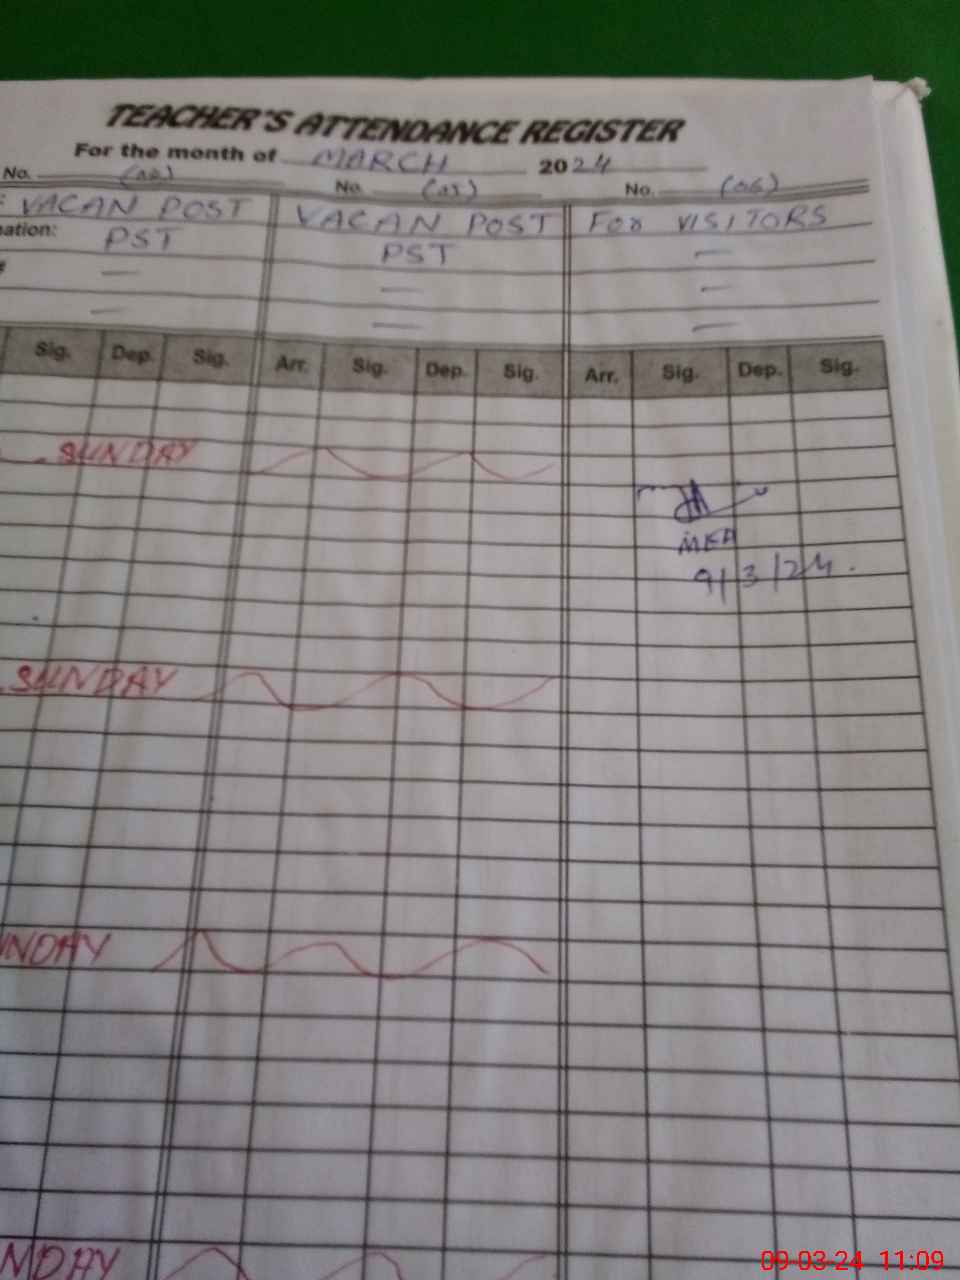 TEACHER'S ATTENDANCE REGISTER
For the month of MARCH 2024
No. No. (05) No. (06)
VACAN POST VACAN POST FOR VISITORS
nation: PST PST
Sig. Dep. Sig. Arr. Sig. Dep. Sig. Arr. Sig. Dep. Sig.
SUNDAY
MEA
9/3/24.
SUNDAY
UNDAY
NDAY
09-03-24 11:09